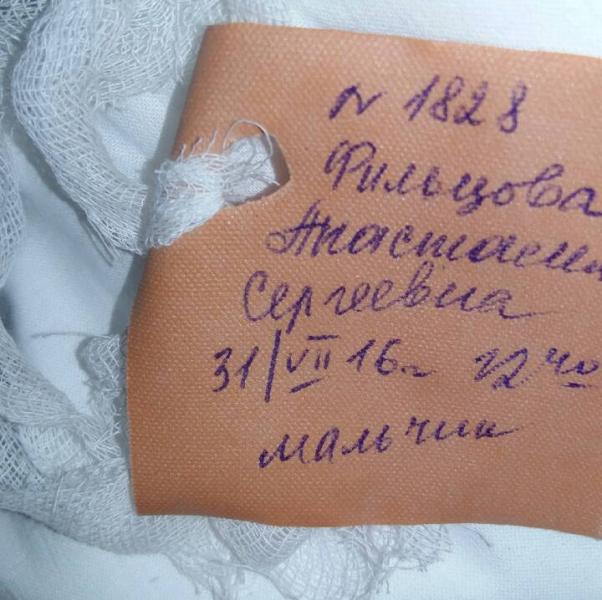 N 1828
Фильцова
Анастасия
Сергеевна
31/VII 16г
мальчик